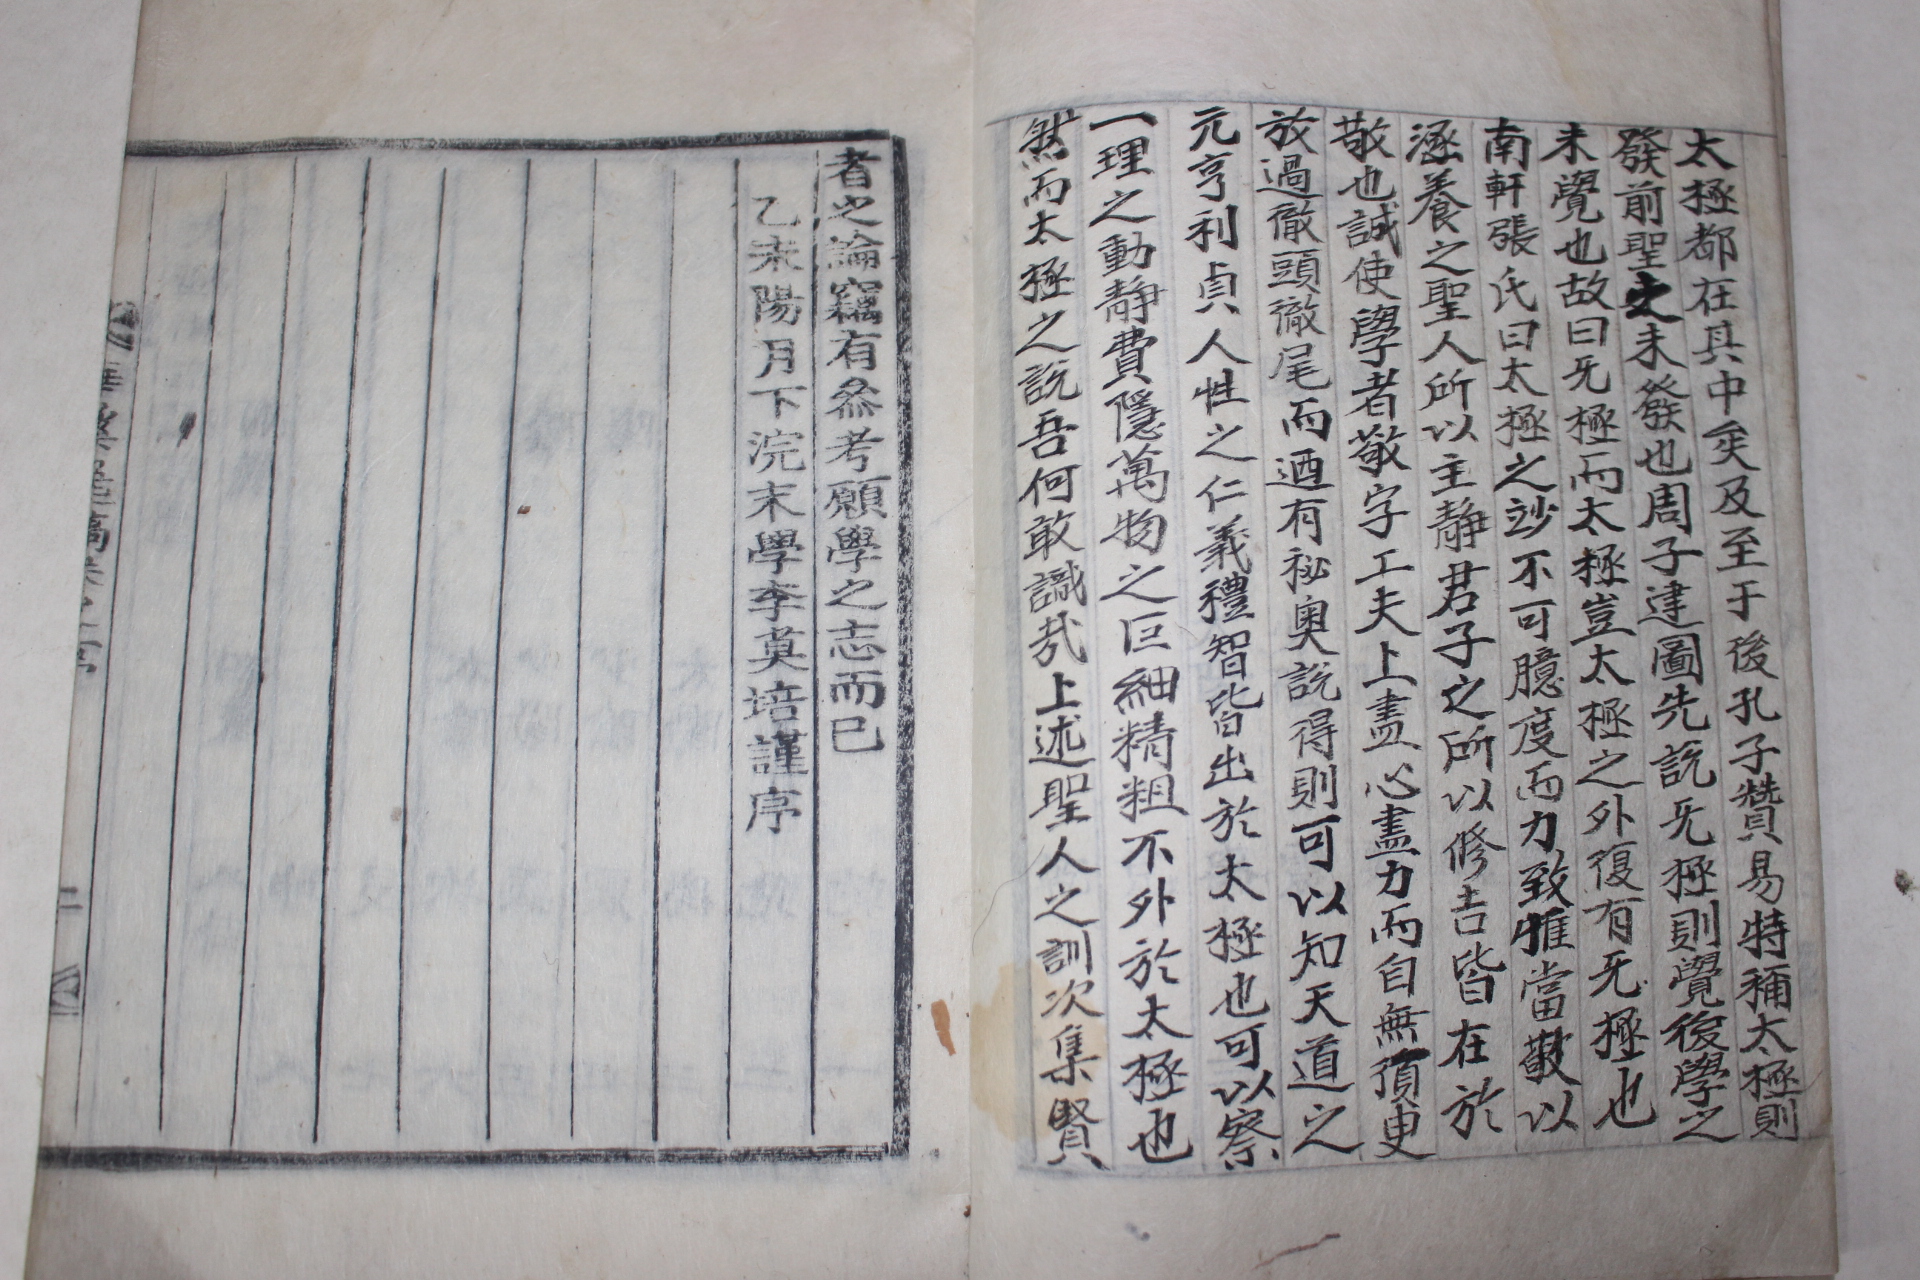 太極都在其中矣及至于後孔子贊易特稱太極則
發前聖之未發也周子建圖先說旡極則覺後學之
未覺也故曰旡極而太極豈太極之外復有旡極也
南軒張氏曰太極之妙不可臆度而力致惟當敬以
涵養之聖人所以主靜君子之所以修吉皆在於
敬也誠使學者敬字工夫上盡心盡力而自無須臾
放過徹頭徹尾而迺有祕奧說得則可以知天道之
元亨利貞人性之仁義禮智皆出於太極也可以察
一理之動靜費隱萬物之巨細精粗不外於太極也
然而太極之說吾何敢識哉上述聖人之訓次集賢
者之論竊有叅考願學之志而已
乙未陽月下浣末學李萬培謹序
二